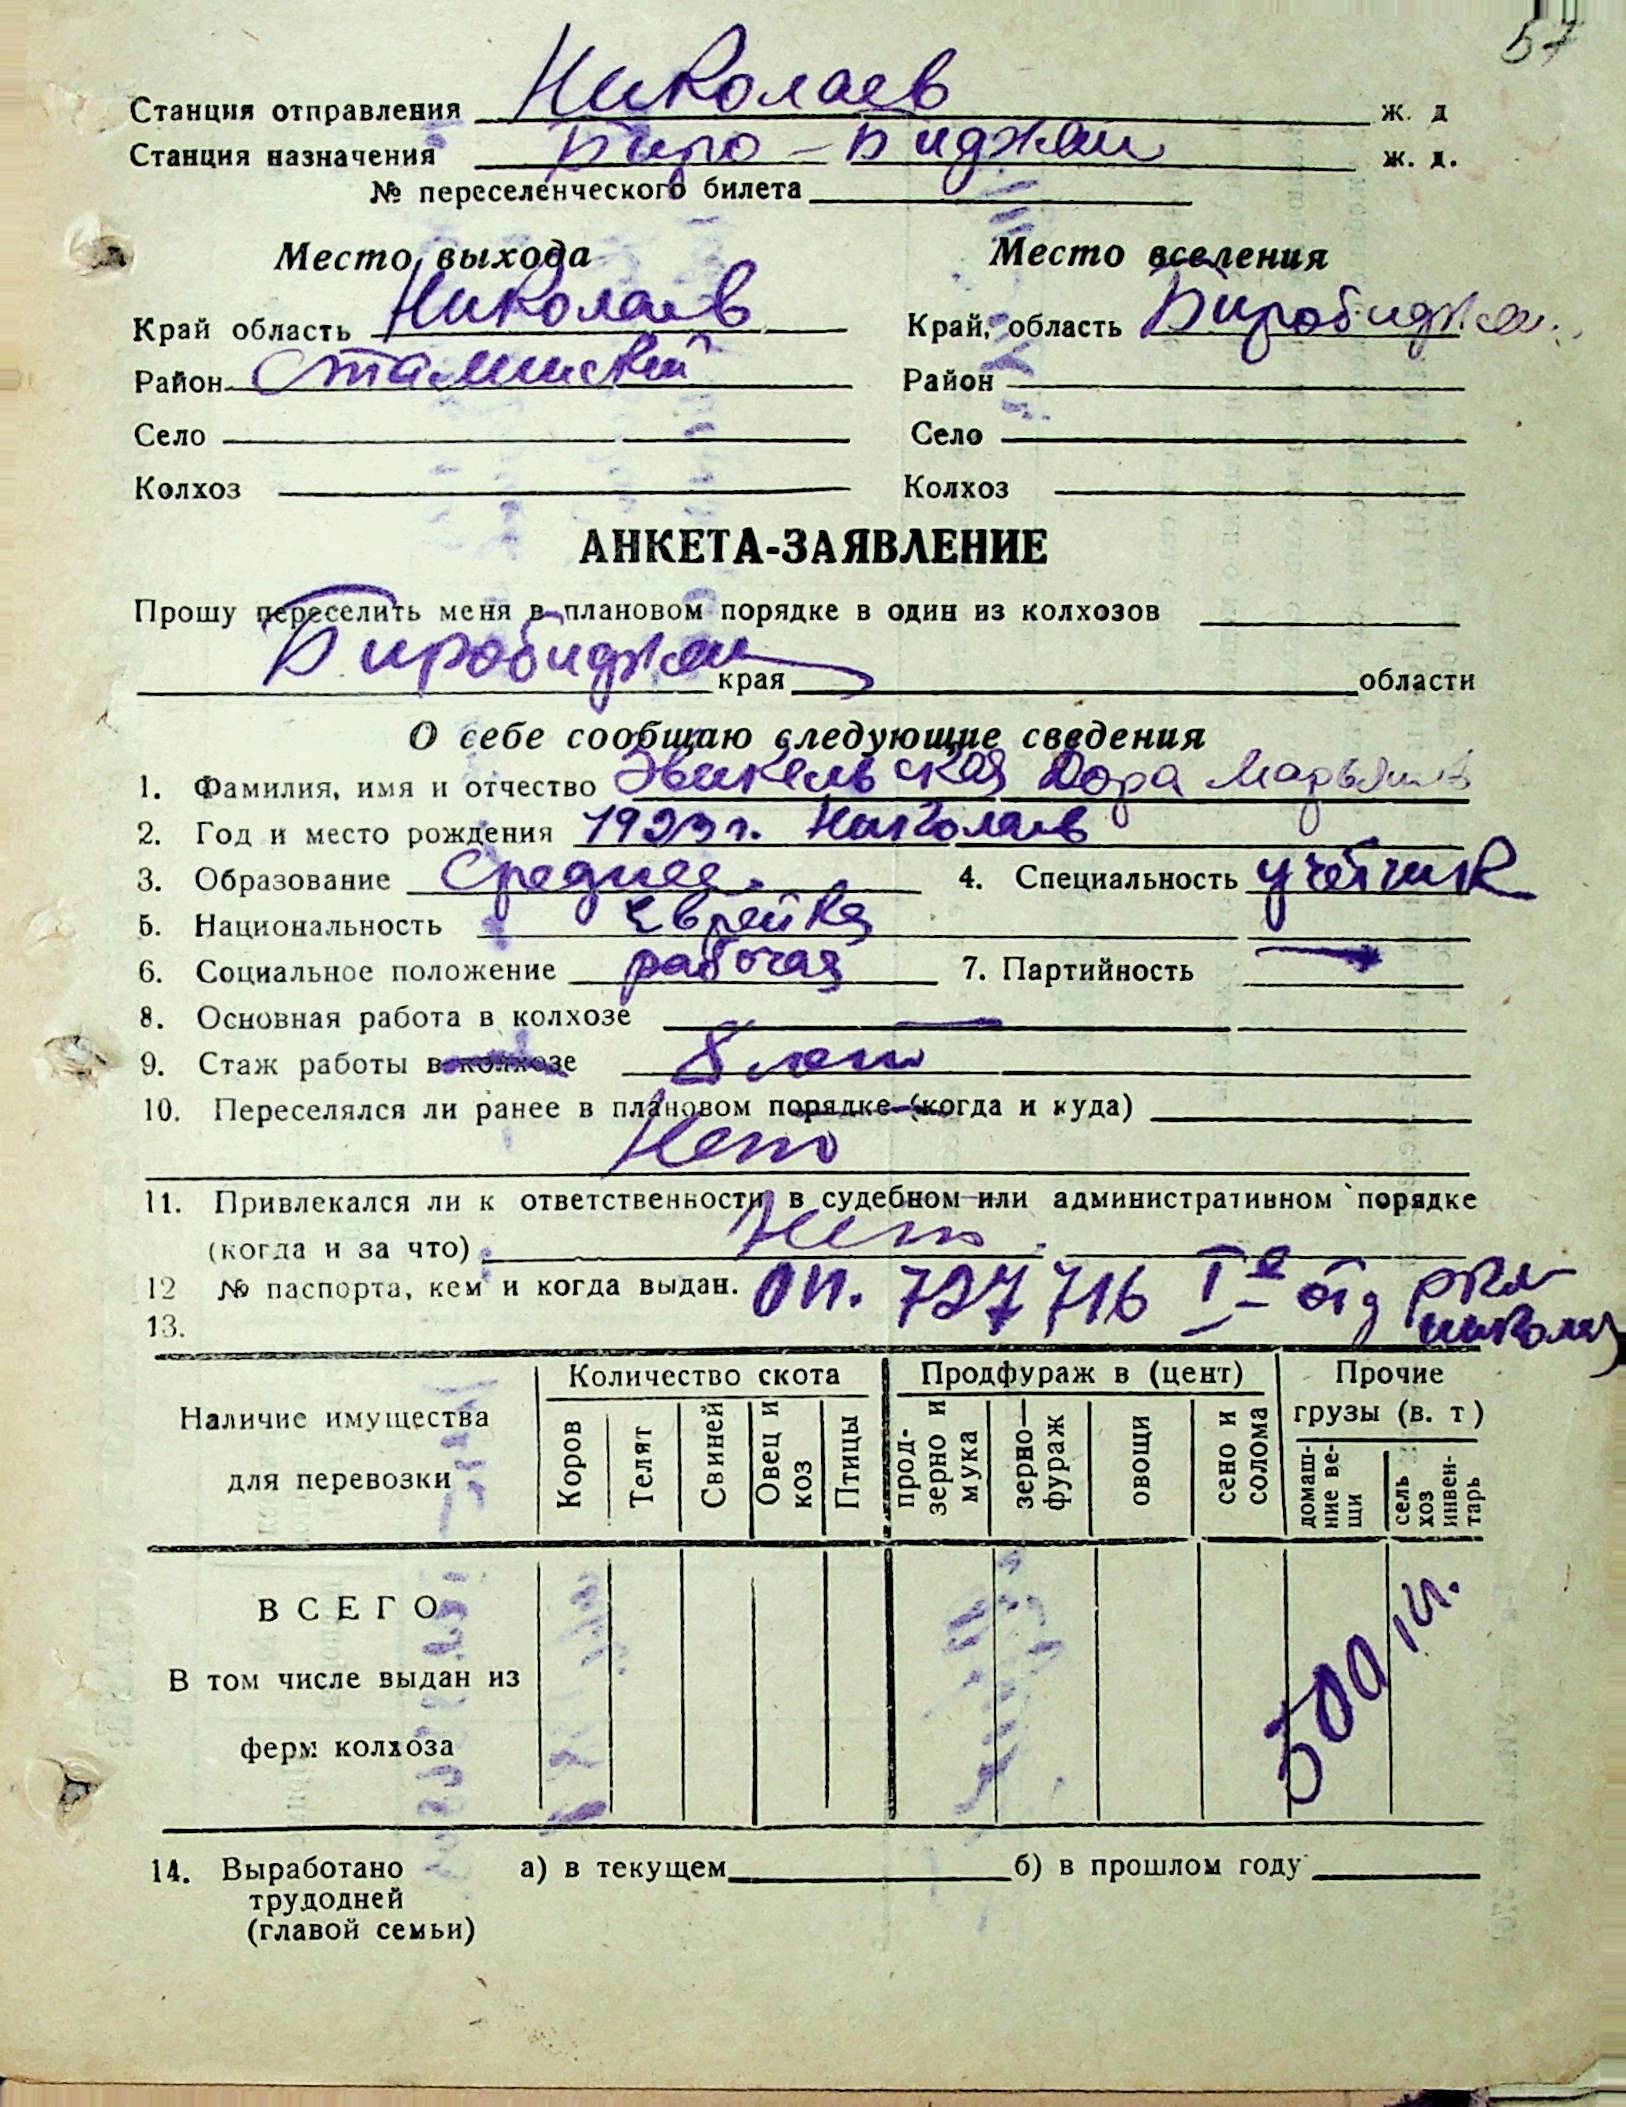 57
Станция отправления Николаев ж. д
Станция назначения Биро-Биджан ж. д.
№ переселенческого билета
Место выхода Место вселения
Край область Николаев Край, область Биробиджан.
Район Сталинский Район
Село Село
Колхоз Колхоз
АНКЕТА-ЗАЯВЛЕНИЕ
Прошу переселить меня в плановом порядке в один из колхозов
Биробиджан края области
О себе сообщаю следующие сведения
1. Фамилия, имя и отчество Дора
2. Год и место рождения 1923 г. Николаев
3. Образование Среднее. 4. Специальность учётчик
5. Национальность Еврейка
6. Социальное положение рабочая 7. Партийность —
8. Основная работа в колхозе —
9. Стаж работы в колхозе 8 лет
10. Переселялся ли ранее в плановом порядке (когда и куда)
Нет
11. Привлекался ли к ответственности в судебном или административном порядке
(когда и за что) Нет.
12 № паспорта, кем и когда выдан. 727716 I-е отд РКМ
13. Николаев
Количество скота Продфураж в (цент) Прочие
грузы (в. т)
Наличие имущества
для перевозки
Коров Телят Свиней Овец и коз Птицы прод-зерно и мука зерно—фураж овощи сено и солома домаш-ние ве-щи сель хоз инвен-тарь
ВСЕГО 500 кг.
В том числе выдан из
ферм колхоза
14. Выработано а) в текущем б) в прошлом году
трудодней
(главой семьи)